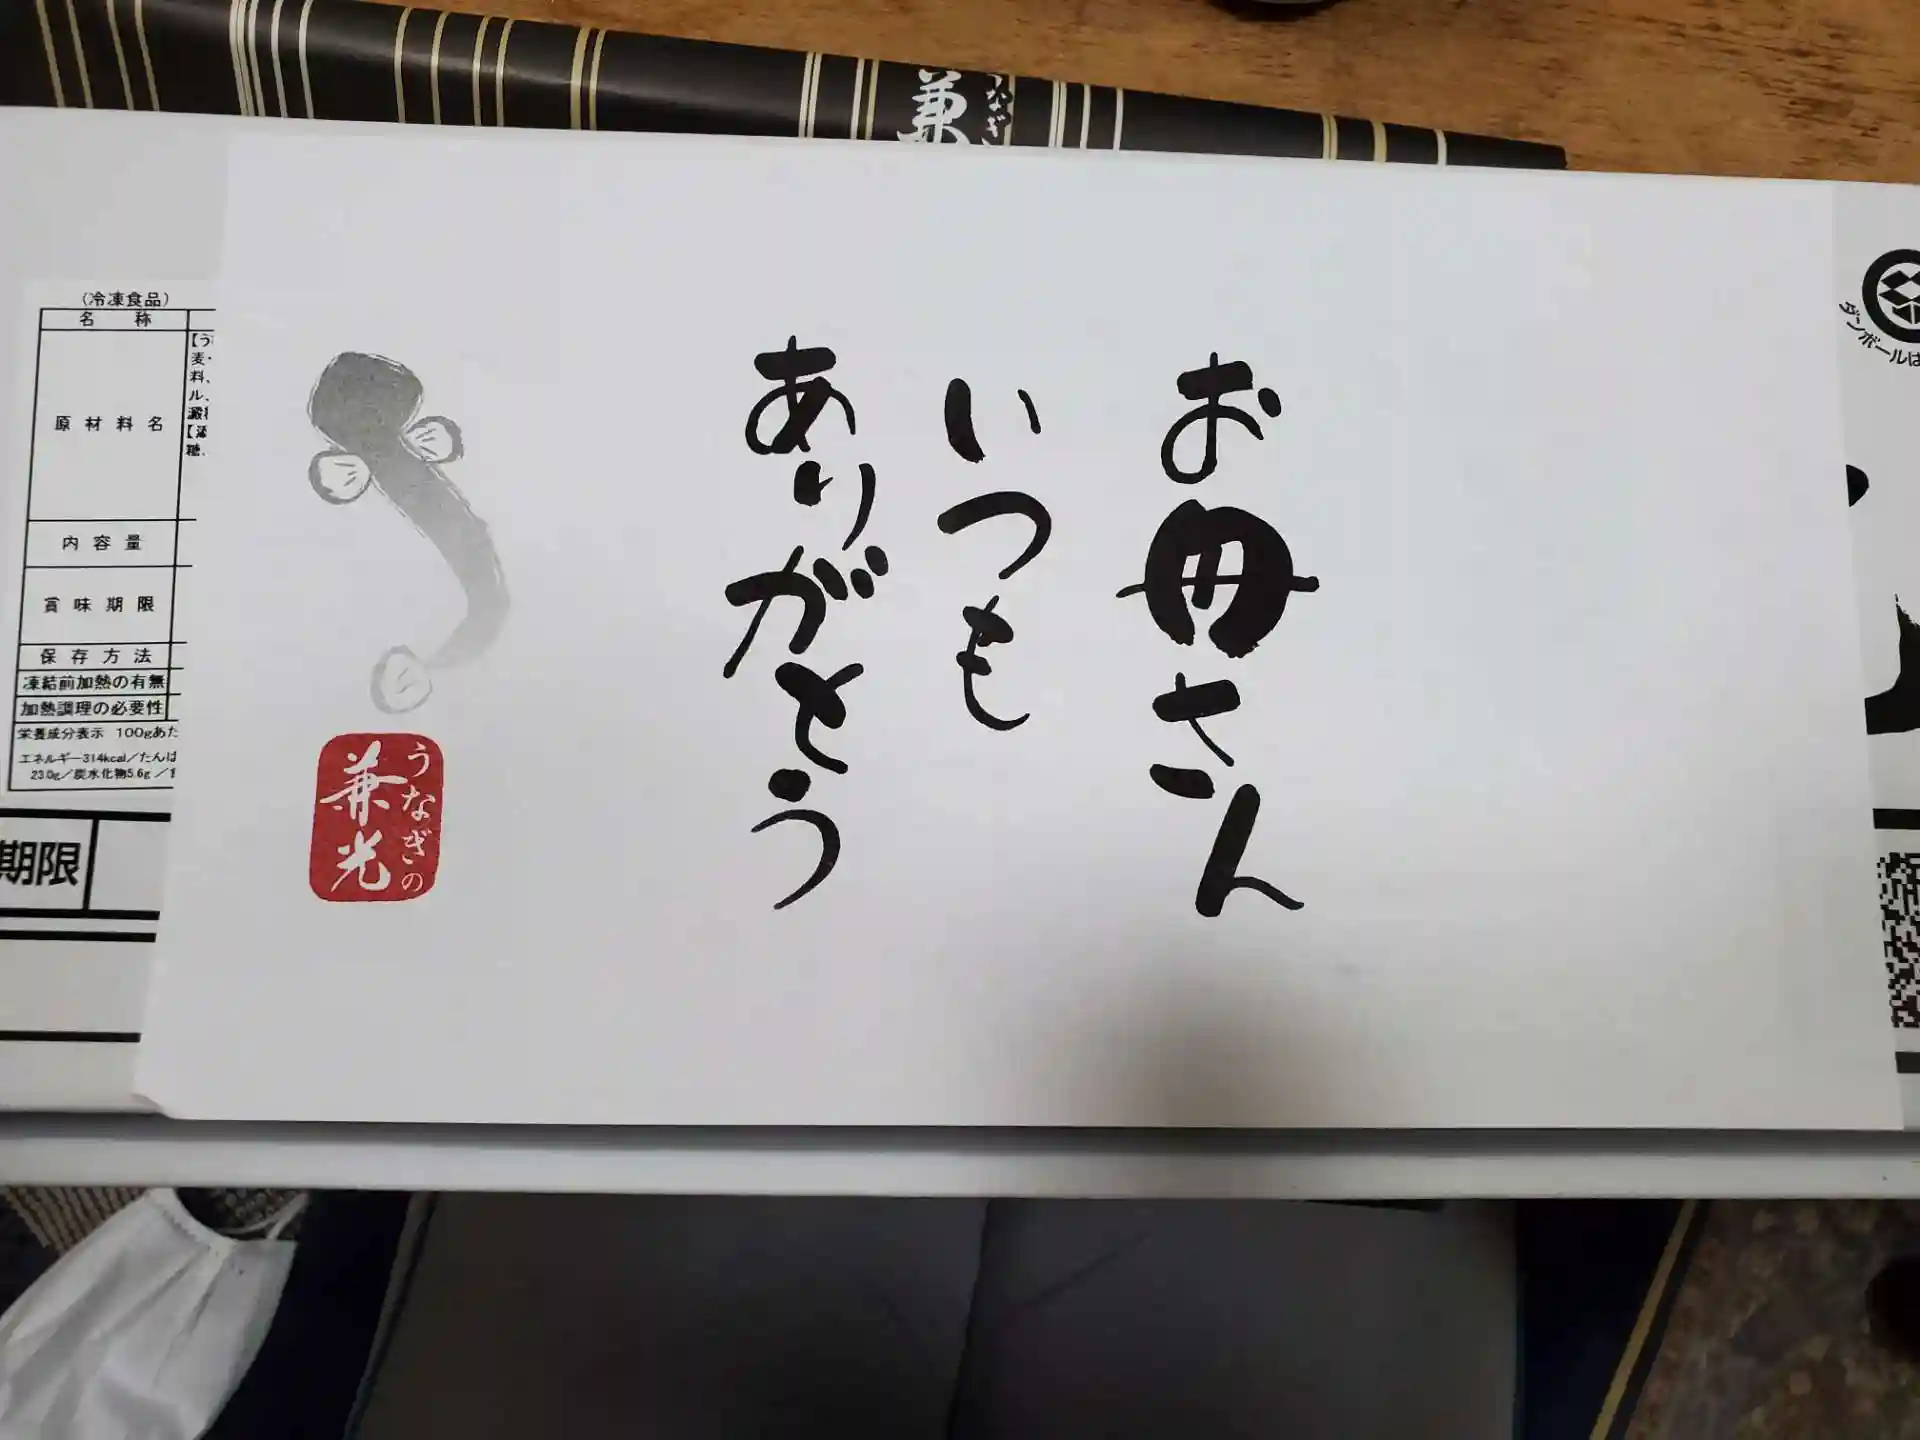 お母さん
いつも
ありがとう
うなぎの
兼光
うなぎ
兼
(冷凍食品)
名 称
原 材 料 名
【う
麦・
料、
ル、
糖、
内 容 量
賞 味 期 限
保 存 方 法
凍結前加熱の有無
加熱調理の必要性
栄養成分表示 100gあた
エネルギー314kcal/たんぱ
23.0g/炭水化物5.6g/食
期限
ダンボールは